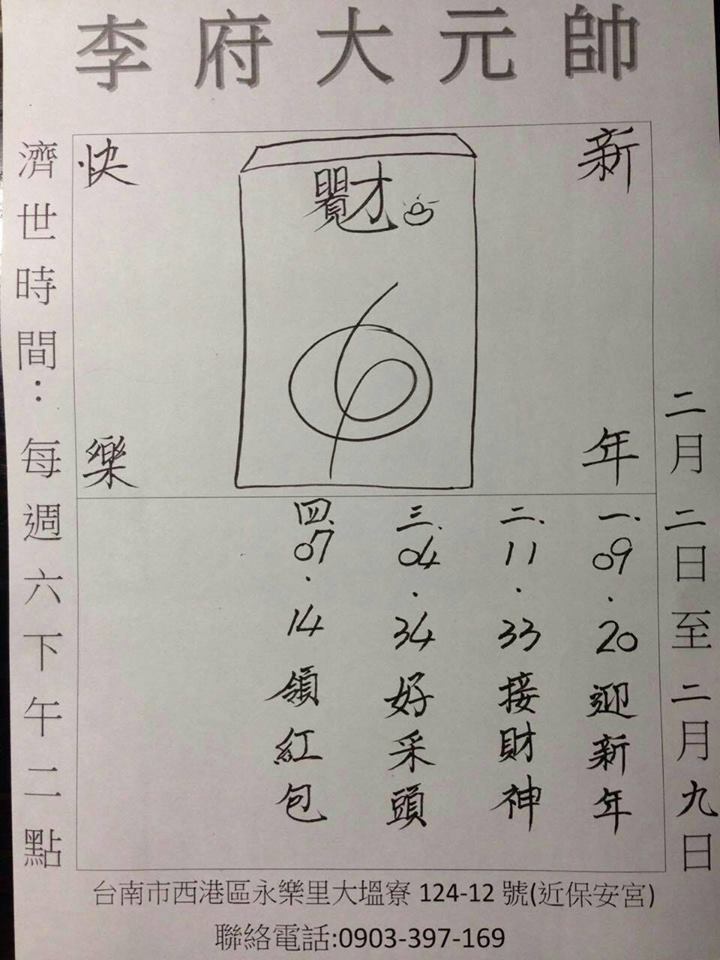 李府大元帥
二月二日至二月九日
新年
快樂
一.09.20迎新年
二.11.33接財神
三.04.34好采頭
四.07.14領紅包
濟世時間：每週六下午二點
台南市西港區永樂里大塭寮 124-12 號(近保安宮)
聯絡電話:0903-397-169